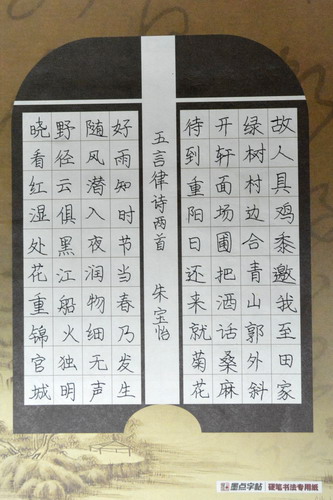 故人具鸡黍邀我至田家
绿树村边合青山郭外斜
开轩面场圃把酒话桑麻
待到重阳日还来就菊花
五言律诗两首 朱宝怡
好雨知时节当春乃发生
随风潜入夜润物细无声
野径云俱黑江船火独明
晓看红湿处花重锦官城
墨点字帖 硬笔书法专用纸